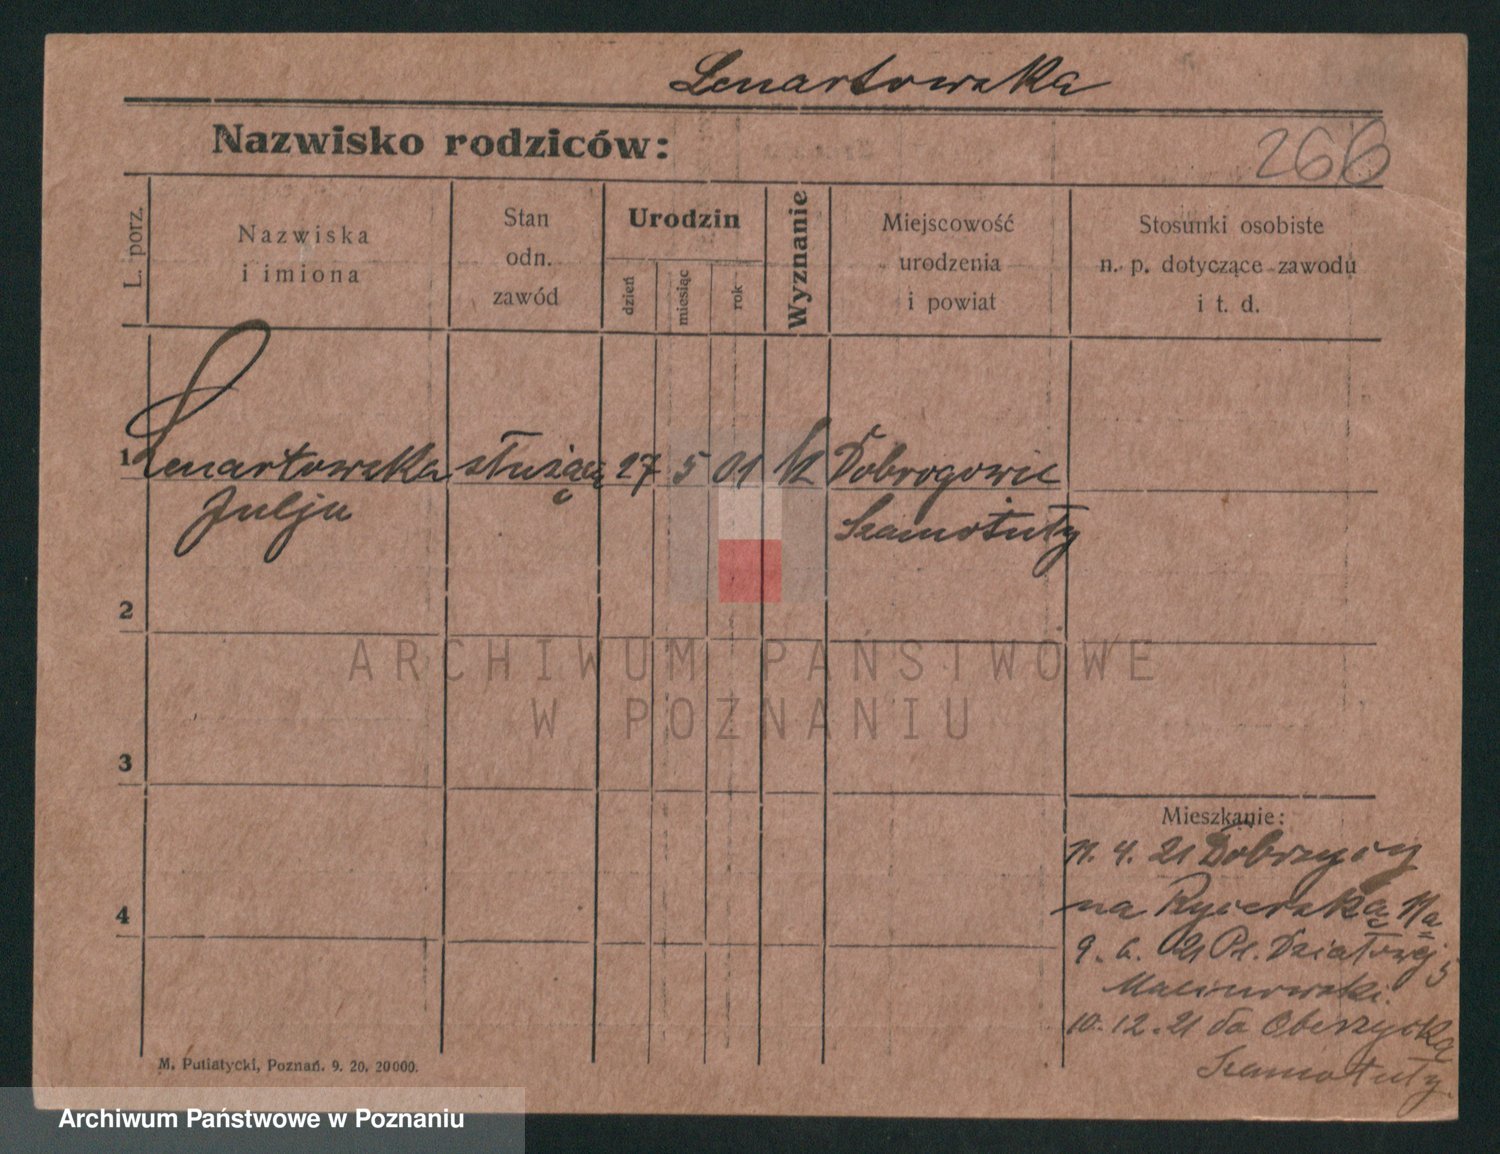 Lenartowska
Nazwisko rodziców:
266
L. porz.
Nazwiska
i imiona
Stan
odn.
zawód
Urodzin
dzień
miesiąc
rok
Wyznanie
Miejscowość
urodzenia
i powiat
Stosunki osobiste
n. p. dotyczące zawodu
i t. d.
1 Lenartowska służąca 27 5 01 k Dobrogowic
Julja Szamotuły
2
3
4
ARCHIWUM PAŃSTWOWE
W POZNANIU
Mieszkanie:
11. 4. 21
na Rycerską 11a
9. 6. 21 Pl. Działowej 5
Malinowski.
10. 12. 21 do Oberzycka
Szamotuły
M. Putiatycki, Poznań. 9. 20. 20000.
Archiwum Państwowe w Poznaniu